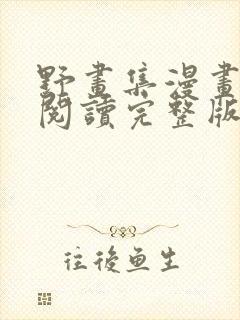 野畫集漫畫
閱讀完整版
往後魚生